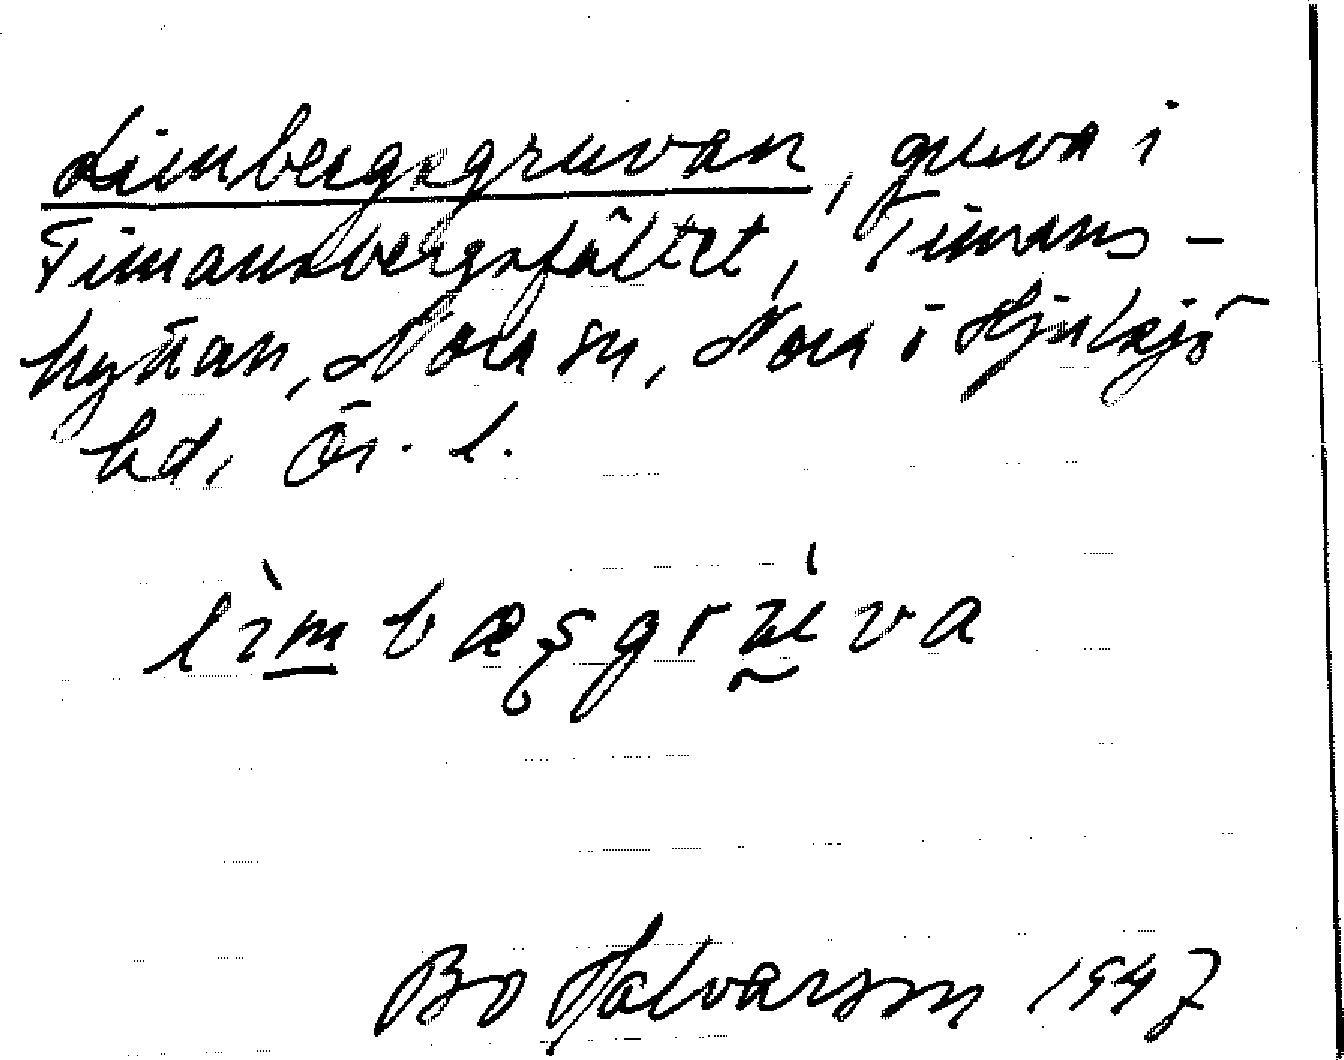 Limbergsgruvan, gruva i
Timansbergsfältet, Timans-
hyttan, Nora sn, Nora i Hjulsjö
hd, Ör. l.
lìmbæşgrúva
Bo Halvarson 1947